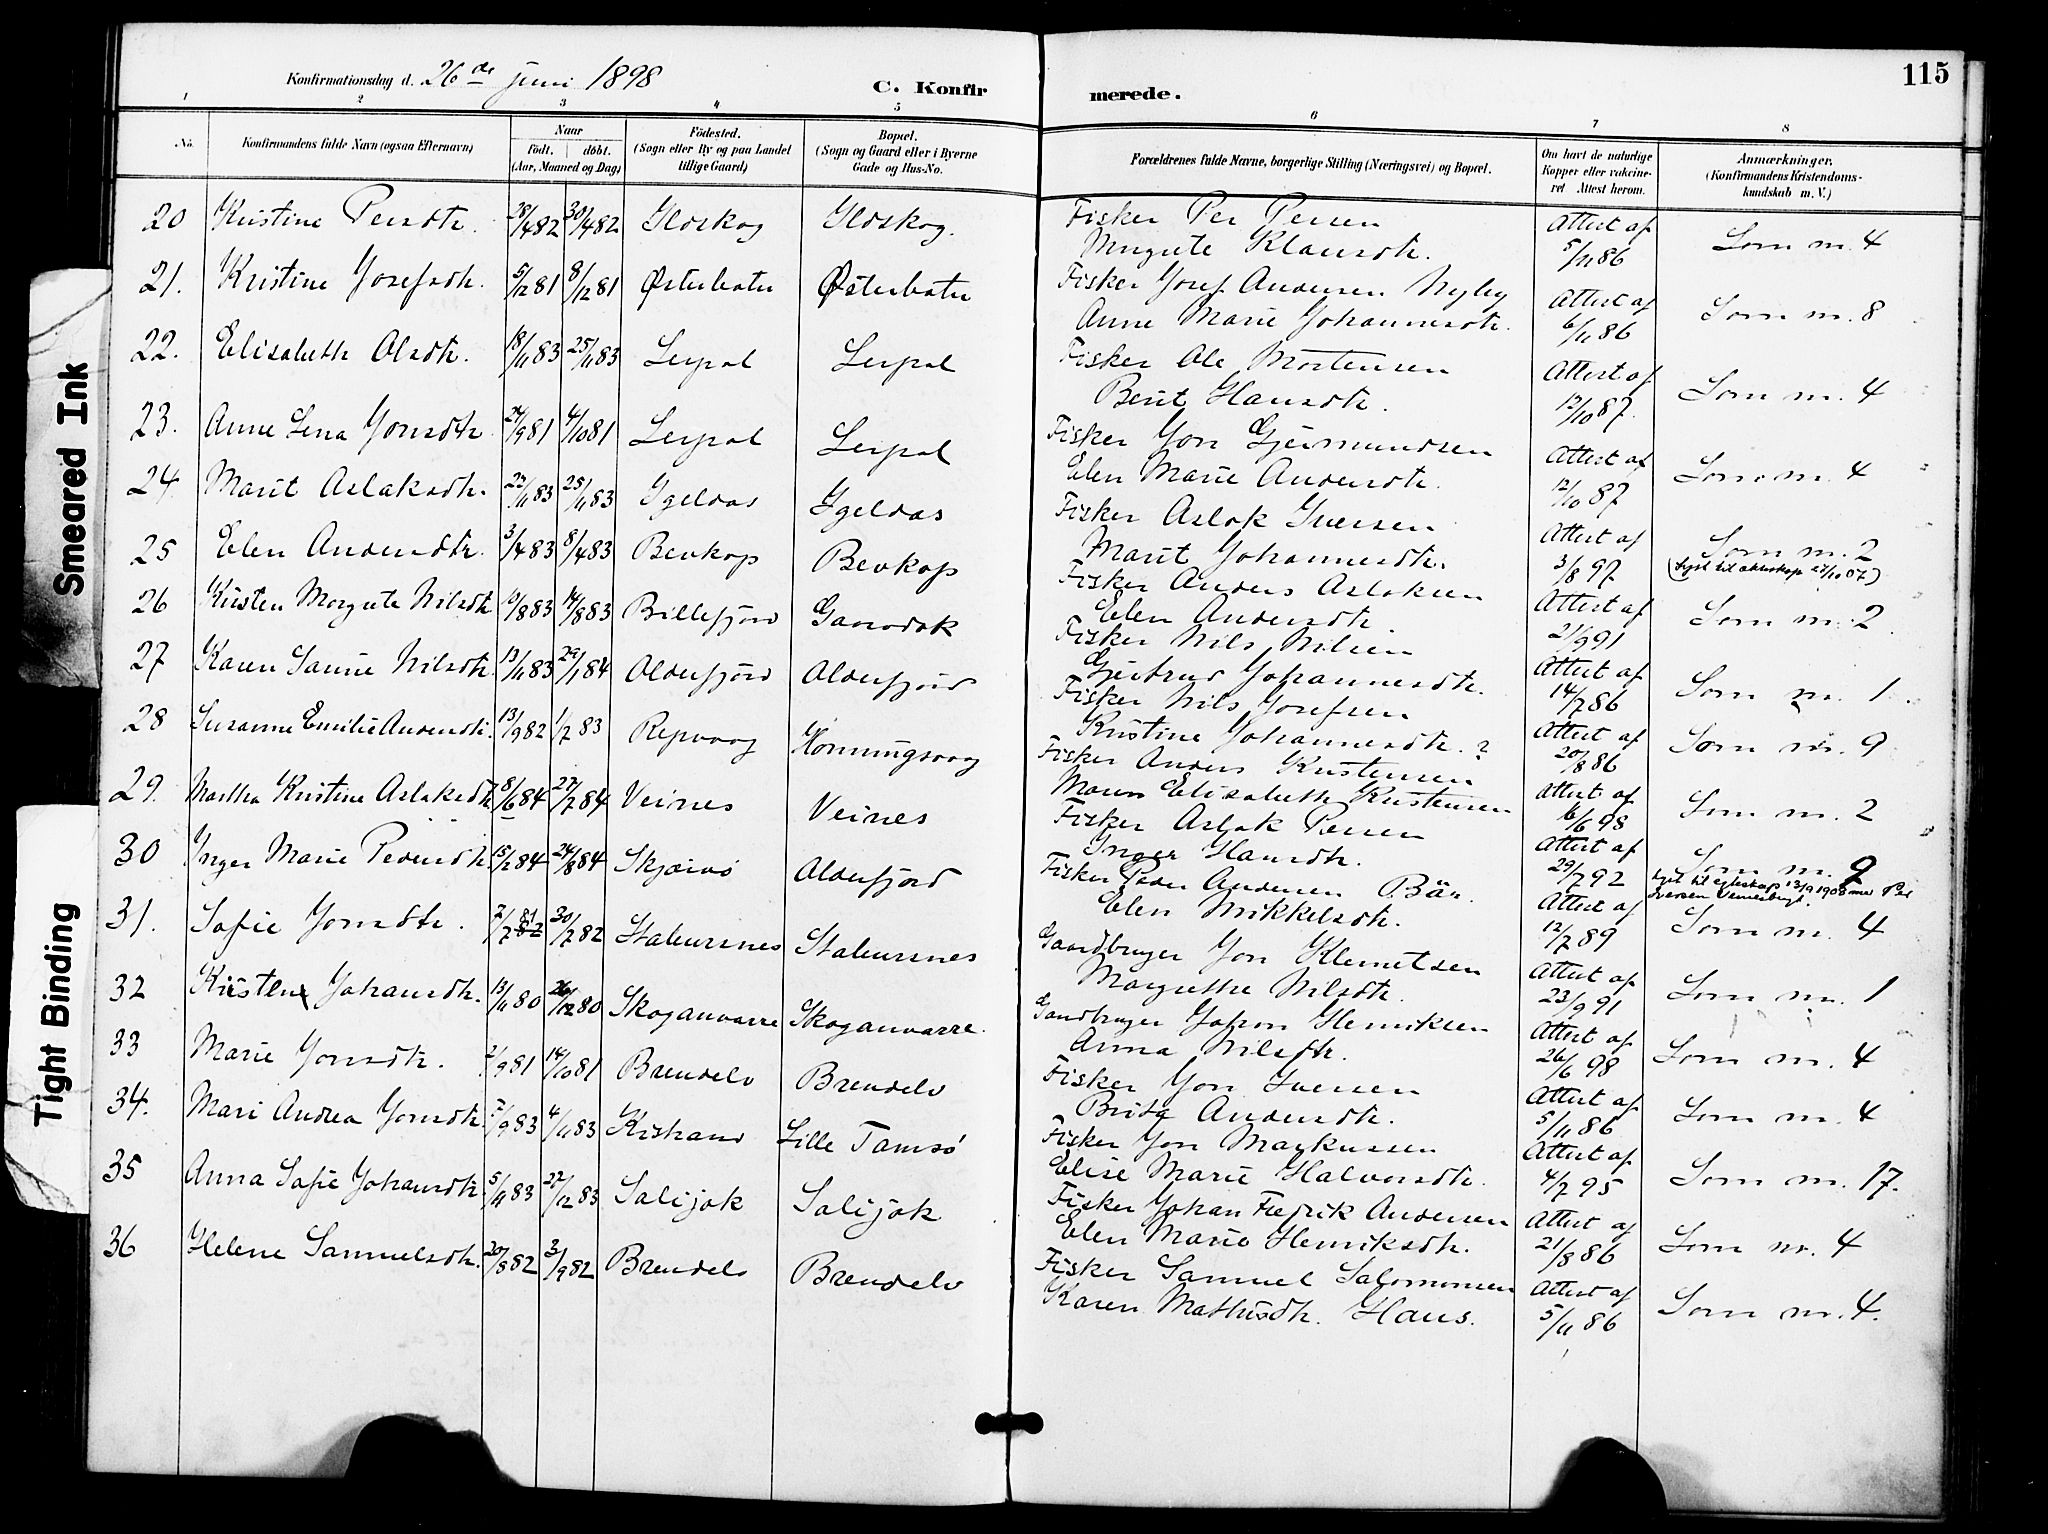 Konfirmationsdag d. 26de juni 1898
C. Konfirmerede.
115
1 2 3 4 5 6 7 8
No.
Konfirmandens fulde Navn (ogsaa Efternavn)
Naar
født. døbt.
(Aar, Maaned og Dag)
Födested.
(Sogn eller By og paa Landet tillige Gaard)
Bopæl.
(Sogn og Gaard eller i Byerne Gade og Hus-No.
Forældrenes fulde Navne, borgerlige Stilling (Næringsvei) og Bopæl.
Om havt de naturlige Kopper eller vakcineret Attest herom.
Anmærkninger.
(Konfirmandens Kristendomskundskab m. V.)
20 Kristine Persdtr. 28/4 82 30/4 82 Ildskog Ildskog.
Fisker Per Persen
Margrete Klausdtr.
Attest af 5/11 86
Som nr. 4
21. Kristine Josefsdtr. 5/12 81 8/12 81 Østerbotn Østerbotn
Fisker Josef Andersen Nyby
Anne Marie Johannesdtr.
Attest af 6/11 86
Som nr. 8
22. Elisabeth Olsdtr. 18/11 83 25/11 83 Lerpol Lerpol
Fisker Ole Mortensen
Berit Hansdtr.
Attest af 12/10 87.
Som nr. 4
23. Anne Lena Jonsdtr. 24/9 81 4/10 81 Lerpol Lerpol
Fisker Jon Gjermundsen
Elen Marie Andersdtr.
Attest af 12/10 87
Som nr. 4
24 Marit Aslaksdtr. 23/11 83 25/11 83 Igeldas Igeldas
Fisker Aslak Iversen
Marit Johannesdtr.
Attest af 3/8 97
Som nr. 2
(lyst til ekteskap 27/10 07)
25 Elen Andersdtr. 3/4 83 8/4 83 Bevkop Bevkop
Fisker Anders Aslaksen
Elen Andersdtr.
Attest af 21/9 91
Som nr. 2
26 Kristen Margrete Nilsdtr /8 83 14/8 83 Billefjord
Fisker Nils Nilsen
Gjertrud Johannesdtr.
Attest af 14/7 86
Som nr. 1
27 Karen Sanne Nilsdtr. 13/11 83 29/1 84 Oldefjord Oldefjord
Fisker Nils Josefsen
Kristine Johannesdtr. ?
Attest af 20/8 86
Som nr. 9
28 Susanne Emilie Andersdtr. 13/9 82 1/7 83 Repvaag Honningsvaag
Fisker Anders Kristensen
Maren Elisabeth Kristensen
Attest af 6/6 98
Som nr. 2
29. Martha Kristine Aslaksdtr 8/6 84 27/7 84 Veines Veines
Fisker Aslak Persen
Inger Hansdtr.
Attest af 29/7 92
Som nr. 2
lyst til egteskap 13/9 1908 med Per Iversen
30 Inger Marie Pedersdtr. 15/2 84 24/8 84 Skjærvø Oldefjord
Fisker Peder Andersen Bær.
Elen Mikkelsdtr.
Attest af 12/7 89
Som nr. 4
31. Safie Jonsdtr. 2/7 81 82 30/7 82 Stabursnes Stabursnes
Gaardbruger Jon Klemetsen
Margrethe Nilsdtr.
Attest af 23/9 91
Som nr. 1
32 Kristen Johansdtr. 13/11 80 26/12 80 Skoganvarre Skoganvarre.
Gaardbruger Johan Henriksen
Anna Nilsdtr.
Attest af 26/6 98
Som nr. 4
33 Marie Jonsdtr. 2/9 81 14/10 81 Brendelv Brendelv
Fisker Jon Iversen
Brita Andersdtr.
Attest af 5/11 86
Som nr. 4
34. Mari Andrea Jonsdtr. 7/9 83 4/11 83 Kistrand Lille Tamsø
Fisker Jon Markussen
Elise Marie Halvorsdtr.
Attest af 4/7 95
Som nr. 17.
35 Anna Safie Johansdtr. 5/11 83 27/12 83 Salijok Salijok
Fisker Johan Fredrik Andersen
Elen Marie Henriksdtr.
Attest af 21/8 86
Som nr. 4
36 Helene Samuelsdtr. 20/8 82 3/9 82 Brendelv Brendelv
Fisker Samuel Salomonsen
Karen Mathisdtr. Hans.
Attest af 5/11 86
Som nr. 4.
Smeared Ink
Tight Binding